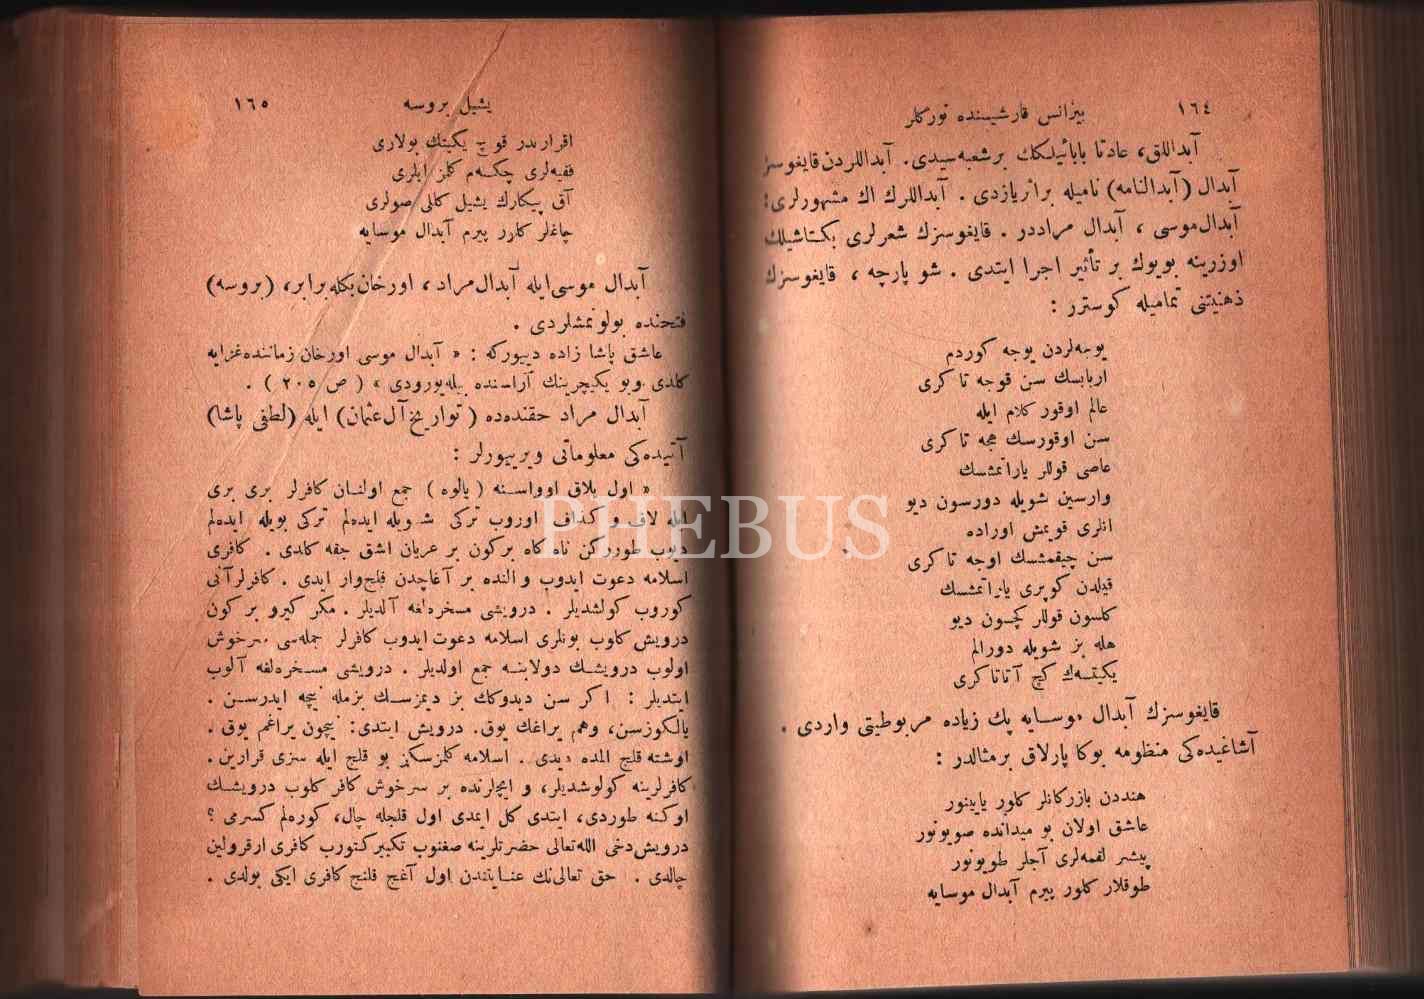 ١٦٤
بیزانس قارشیسنده تورکلر
آبداللق، عادتا بابائیلكك برشعبه‌سیدی. آبداللردن قایغوسز
آبدال (آبدالنامه) نامیله براثریازدی . آبداللرك اك مشهورلری:
آبدال‌موسی ، آبدال مراددر . قایغوسزك شعرلری بكتاشیلك
اوزرینه بویوك بر تأثیر اجرا ایتدی . شو پارچه ، قایغوسزك
ذهنیتنی تمامیله كوسترر :
یوجه‌لردن یوجه كوردم
اربابسك سن قوجه تاكری
عالم اوقور كلام ایله
سن اوقورسك هجه تاكری
عاصی قوللر یاراتمشسك
وارسین شویله دورسون دیو
انلری قویمش اوراده
سن چیقمشسك اوجه تاكری
قیلدن كوپری یاراتمشسك
كلسون قوللر كچسون دیو
هله بز شویله دورالم
یكیتسه‌ك كچ آتاتاكری
قایغوسزك آبدال موسایه پك زیاده مربوطیتی واردی .
آشاغیده‌كی منظومه بوكا پارلاق برمثالدر :
هنددن بازركانلر كلور یایینور
عاشق اولان بو میدانده صویونور
پیشر لقمه‌لری آجلر طویونور
طوقلار كلور پیرم آبدال موسایه
یشیل بروسه
١٦٥
اقراریدر قوچ یكیتك بولاری
چكه‌م كلز ایلری
آق پیكارك یشیل كاللی صولری
چاغلر كلور پیرم آبدال موسایه
آبدال موسی ایله آبدال‌مراد، اورخان‌بكله برابر، (بروسه)
فتحنده بولونمشلردی .
عاشق پاشا زاده دییوركه : « آبدال موسی اورخان زماننده‌غزایه
كلدی وبو یكیچرینك آراسنده بیله‌یورودی » (ص ٢٠٥) .
آبدال مراد حقنده‌ده (تواریخ آل‌عثمان) ایله (لطفی پاشا)
آتیده‌كی معلوماتی ویرییورلر :
« اول بلاق اوواسنه (یالوه) جمع اولنان كافرلر بری بری
ایله لاف و كذاف اوروب تركی شویله ایده‌لم تركی بویله ایده‌لم
دیوب طورركن ناه كاه بركون بر عریان اشق جقه كلدی . كافری
اسلامه دعوت ایدوب و النده بر آغاچدن قلیج‌وار ایدی . كافرلرآنی
كوروب كولشدیلر . درویشی مسخره‌لغه آلدیلر . مكر كیرو بر كون
درویش كلوب بونلری اسلامه دعوت ایدوب كافرلر جمله‌سی سرخوش
اولوب درویشك دولابنه جمع اولدیلر . درویشی مسخره‌لغه آلوب
ایتدیلر : اكر سن دیدوكك بز دیمزسك بزمله نیچه ایدرسن .
یالكوزسن، وهم یراغك یوق. درویش ایتدی: نیچون یراغم یوق .
اوشته قلیج المده دیدی . اسلامه كلمزسكز بو قلیج ایله سزی قرارین .
كافرلرینه كولوشدیلر، و ایچلرنده بر سرخوش كافر كلوب درویشك
اوكنه طوردی، ایتدی كل ایمدی اول قلجله چال، كوره‌لم كسری ؟
درویش‌دخی الله‌تعالی حضرتلرینه صغنوب تكبیركتورب كافری ارقرولین
چالدی . حق تعالی‌نك عنایتندن اول آغج قلنج كافری ایكی بولدی .
PHEBUS